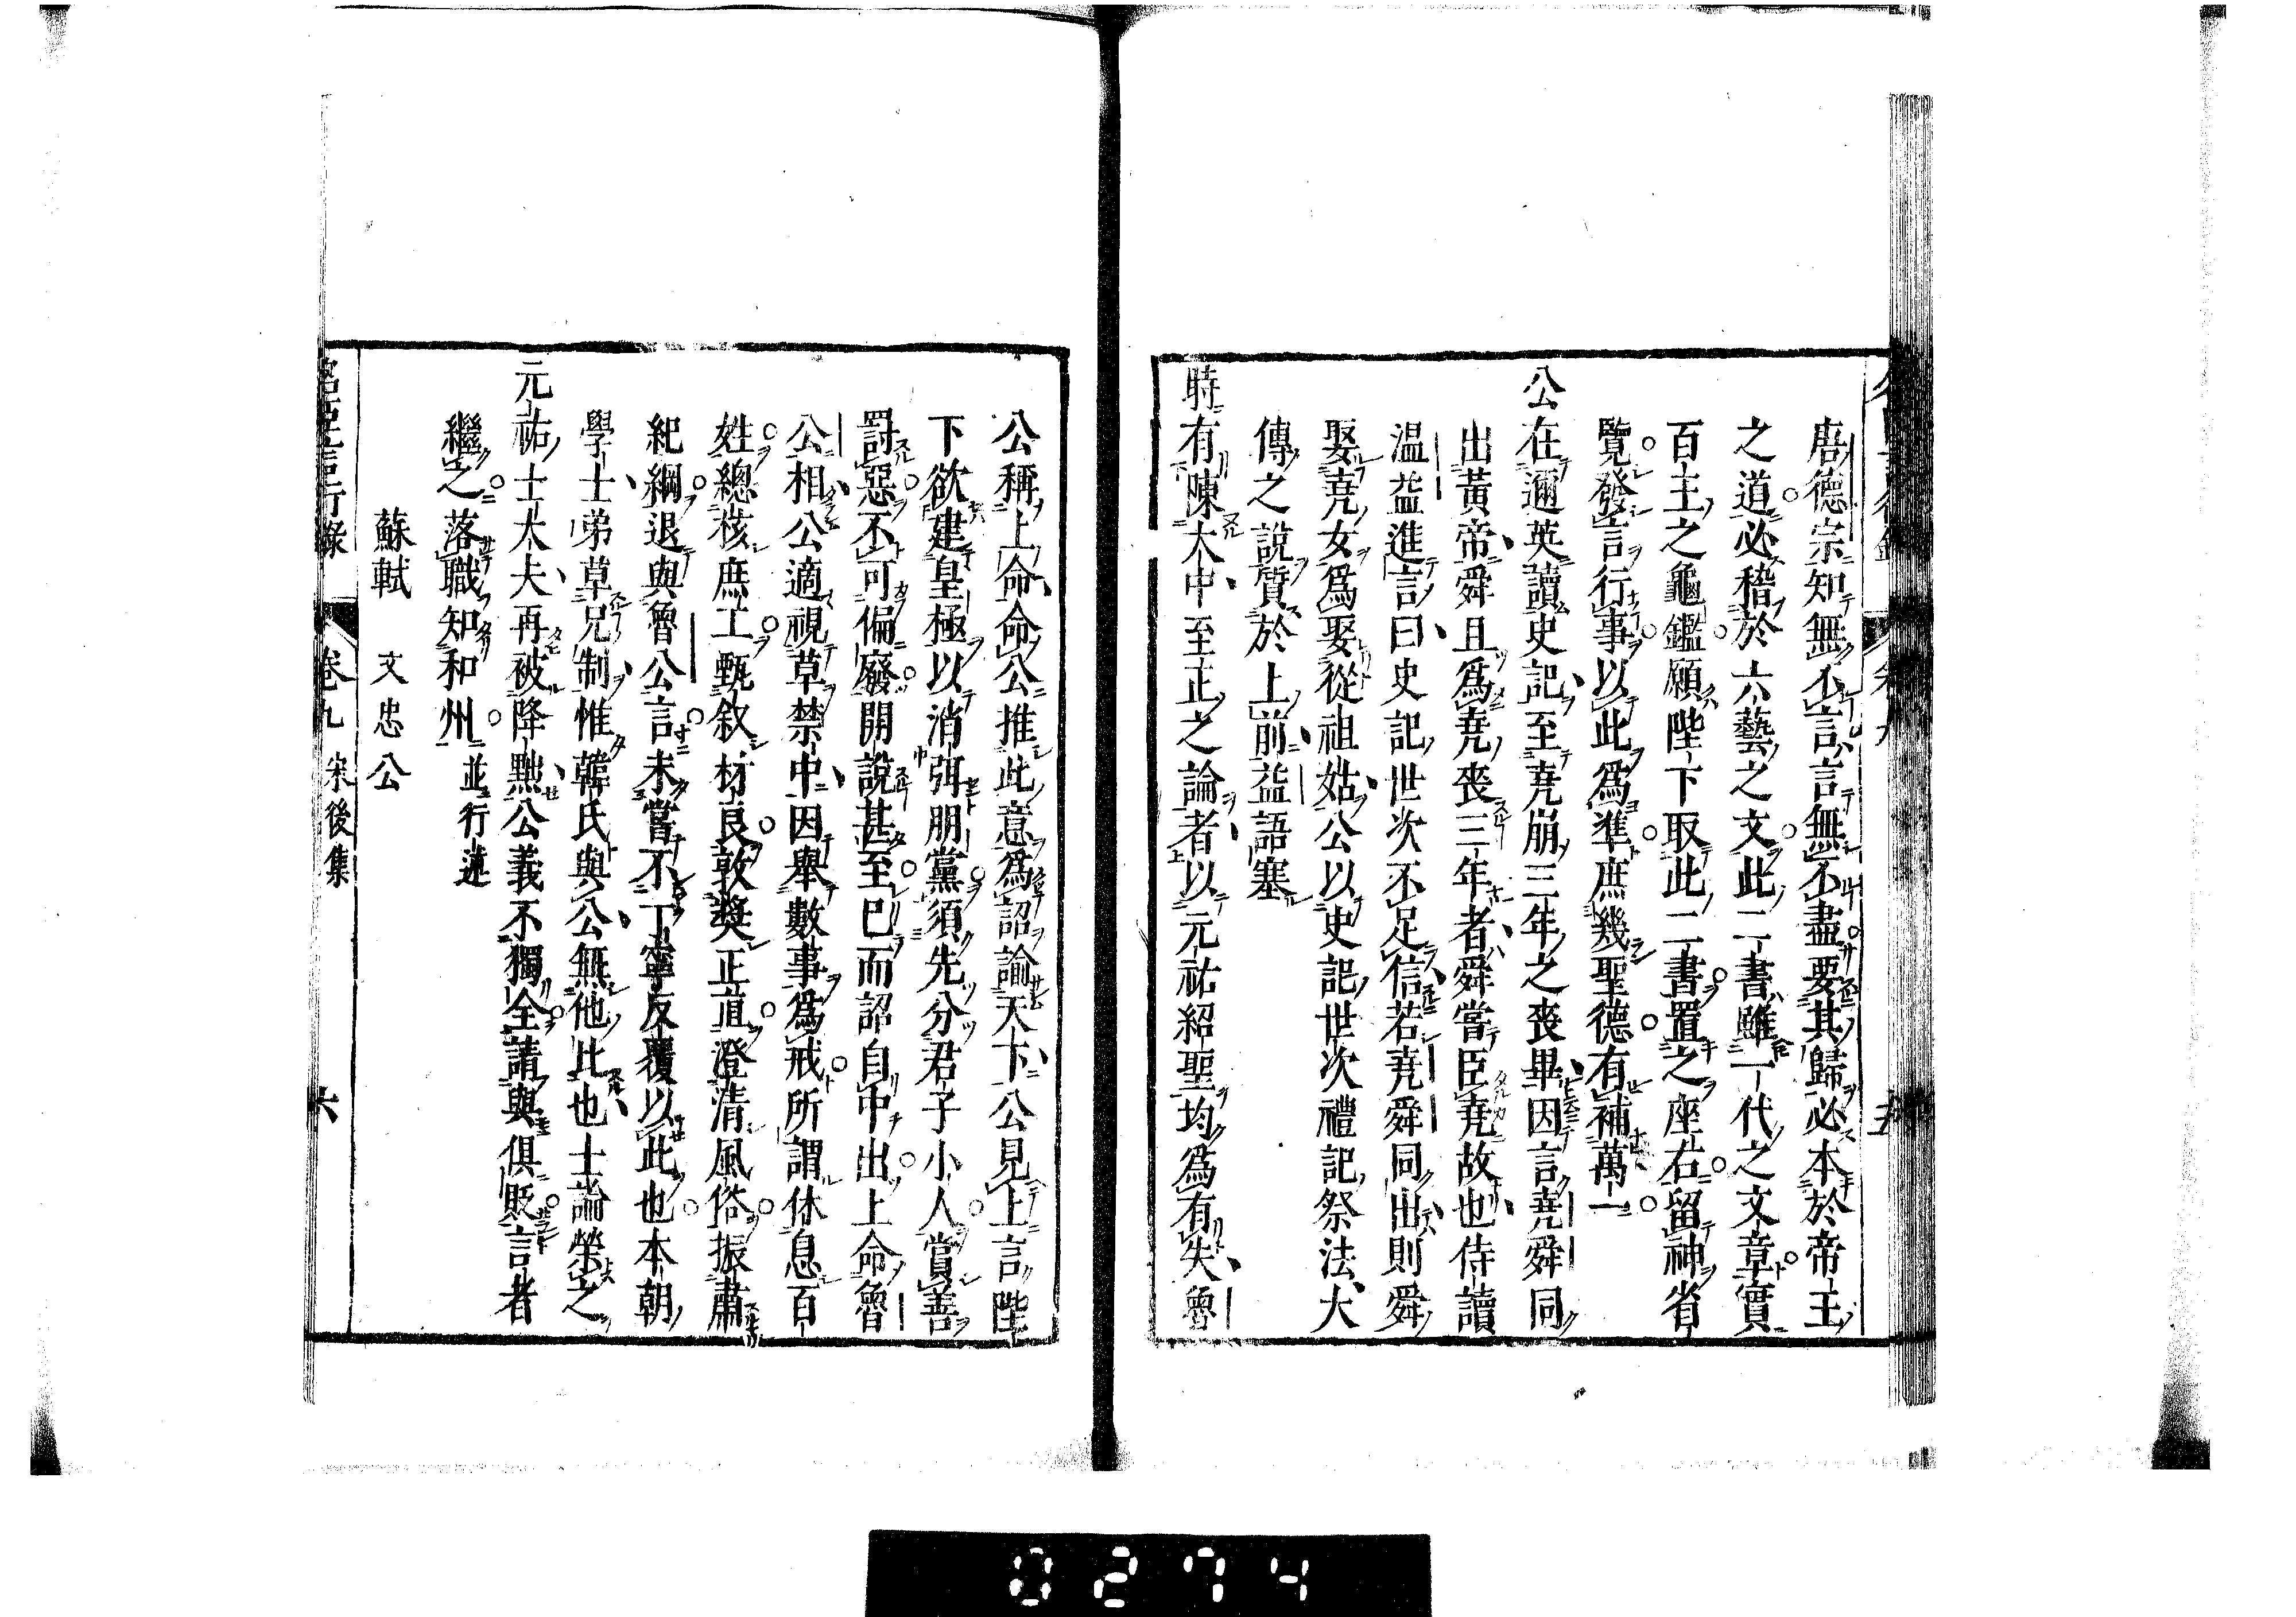 唐德宗知無不言言無不盡要其歸必本於帝王
之道必稽於六藝之文此二書雖一代之文章實
百王之龜鑑願陛下取此二書置之座右留神省
覽發言行事以此爲準庶幾聖德有補萬一
公在邇英讀史記至堯崩三年之喪畢因言堯舜同
出黃帝舜且爲堯喪三年者舜嘗臣堯故也侍讀
溫益進言曰史記世次不足信若堯舜同出則舜
娶堯女爲娶從祖姑公以史記世次禮記祭法大
傳之說質於上前益語塞
時有陳大中至正之論者以元祐紹聖均爲有失魯
公稱上命命公推此意爲詔諭天下公見上言陛
下欲建皇極以消弭朋黨須先分君子小人賞善
罰惡不可偏廢開說甚至已而詔自中出上命魯
公相公適視草禁中因舉數事爲戒所謂休息百
姓總核庶工甄敘材良敦奬正道澄清風俗振肅
紀綱退與魯公言未嘗不丁寧反覆以此也本朝
學士弟草兄制惟韓氏與公無他比也士論榮之
元祐士大夫再被降黜公義不獨全請與俱貶言者
繼之落職知和州並行述
蘇軾 文忠公
名臣言行錄 卷九 宋後集 六